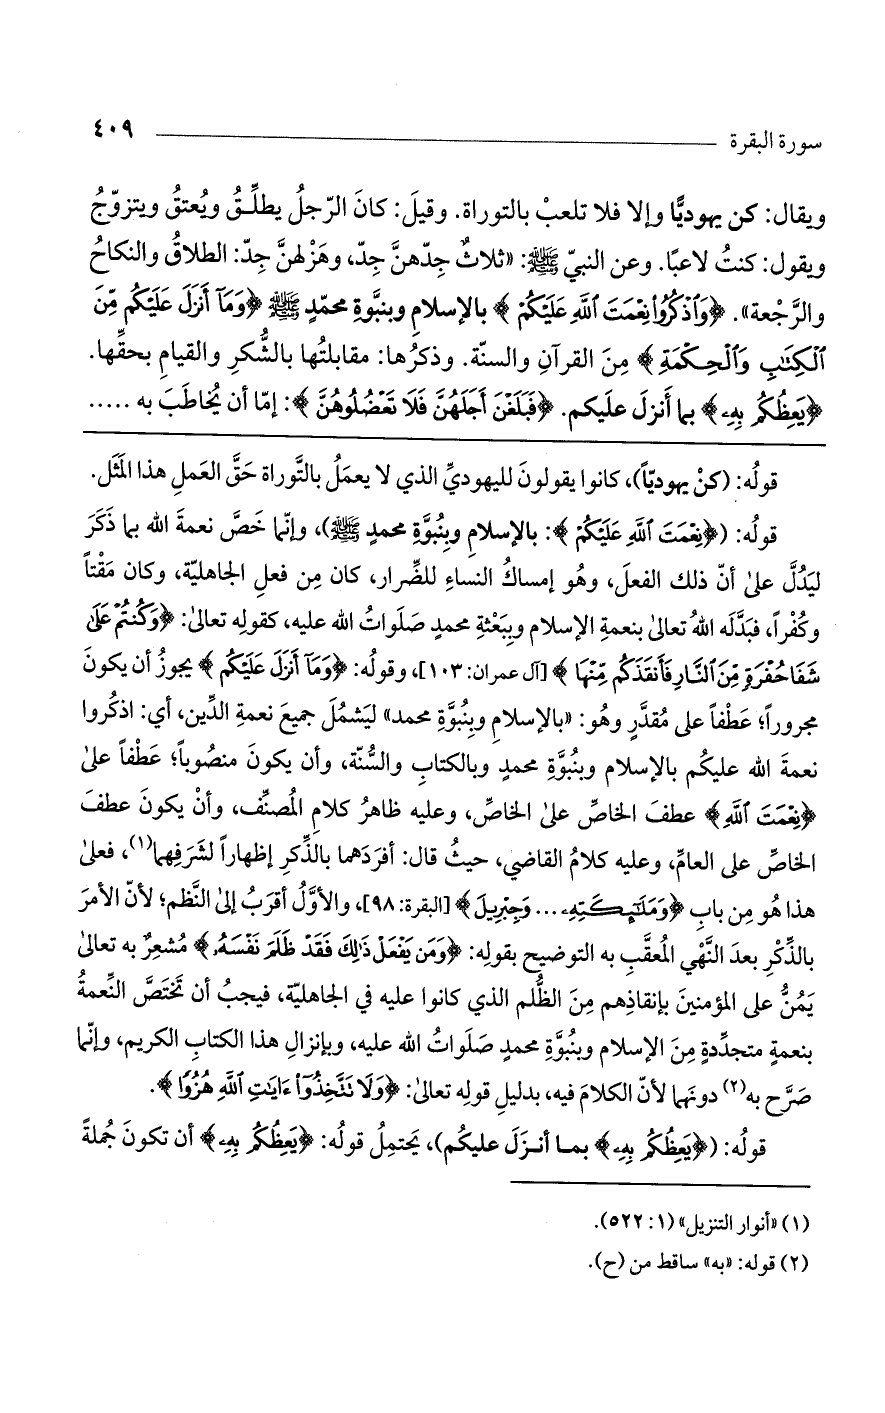 سورة البقرة ٤٠٩
ويقال: كن يهوديًّا وإلا فلا تلعبْ بالتوراة. وقيلَ: كانَ الرّجلُ يطلِّقُ ويُعتقُ ويتزوّجُ
ويقول: كنتُ لاعبًا. وعن النبيّ ﷺ: «ثلاثٌ جِدّهنَّ جِدّ، وهَزْلهنَّ جِدّ: الطلاقُ والنكاحُ
والرَّجْعة». ﴿وَٱذْكُرُوا۟ نِعْمَتَ ٱللَّهِ عَلَيْكُمْ﴾ بالإسلامِ وبنبوَّةِ محمّدٍ ﷺ ﴿وَمَآ أَنزَلَ عَلَيْكُم مِّنَ
ٱلْكِتَٰبِ وَٱلْحِكْمَةِ﴾ مِنَ القرآنِ والسنّة. وذكرُها: مقابلتُها بالشُّكرِ والقيامِ بحقِّها.
﴿يَعِظُكُم بِهِۦ﴾ بما أَنزلَ علَيكم. ﴿فَبَلَغْنَ أَجَلَهُنَّ فَلَا تَعْضُلُوهُنَّ﴾: إمّا أن يُخاطَبَ به .....
قولُه: (كنْ يهوديّاً)، كانوا يقولونَ لليهوديِّ الذي لا يعمَلُ بالتَّوراة حَقَّ العَملِ هذا المَثَل.
قولُه: (﴿نِعْمَتَ ٱللَّهِ عَلَيْكُمْ﴾: بالإسلامِ وبِنُبوَّةِ محمدٍ ﷺ)، وإنّما خَصَّ نعمةَ الله بما ذَكَرَ
ليَدُلَّ علىٰ أنّ ذلك الفعلَ، وهُو إمساكُ النساءِ للضِّرار، كان مِن فعلِ الجاهليّة، وكان مَقْتاً
وكُفْراً، فبَدَّلَه اللهُ تعالىٰ بنعمةِ الإسلام وبِبَعْثةِ محمدٍ صَلَواتُ الله عليه، كقولِه تعالىٰ: ﴿وَكُنتُمْ عَلَىٰ
شَفَا حُفْرَةٍ مِّنَ ٱلنَّارِ فَأَنقَذَكُم مِّنْهَا﴾ [آل عمران: ١٠٣]، وقولُه: ﴿وَمَآ أَنزَلَ عَلَيْكُم﴾ يجوزُ أن يكونَ
مجروراً؛ عَطْفاً على مُقدَّرٍ وهُو: «بالإسلامِ وبِنُبوَّةِ محمد» ليَشمُلَ جميعَ نعمةِ الدِّين، أي: اذكُروا
نعمةَ الله عليكُم بالإسلام وبنُبوَّةِ محمدٍ وبالكتابِ والسُّنّة، وأن يكونَ منصُوباً؛ عَطْفاً علىٰ
﴿نِعْمَتَ ٱللَّهِ﴾ عطفَ الخاصِّ علىٰ الخاصِّ، وعليه ظاهرُ كلامِ المُصنِّف، وأنْ يكونَ عطفَ
الخاصِّ على العامِّ، وعليه كلامُ القاضي، حيثُ قال: أفرَدَهما بالذِّكرِ إظهاراً لشَرَفِهما(١)، فعلىٰ
هذا هُو مِن بابِ ﴿وَمَلَٰٓئِكَتِهِۦ... وَجِبْرِيلَ﴾ [البقرة: ٩٨]، والأوَّلُ أقرَبُ إلىٰ النَّظم؛ لأنّ الأمرَ
بالذِّكْرِ بعدَ النَّهْي المُعقَّبِ به التوضيح بقولِه: ﴿وَمَن يَفْعَلْ ذَٰلِكَ فَقَدْ ظَلَمَ نَفْسَهُۥ﴾ مُشعِرٌ به تعالىٰ
يَمُنُّ على المؤمنينَ بإنقاذِهم مِنَ الظُّلم الذي كانوا عليه في الجاهليّة، فيجبُ أن تَختَصَّ النِّعمةُ
بنعمةٍ متجدِّدةٍ مِنَ الإسلام وبنُبوَّةِ محمدٍ صَلَواتُ الله عليه، وبإنزالِ هذا الكتابِ الكريم، وإنّما
صَرَّح به(٢) دونَهما لأنّ الكلامَ فيه، بدليلِ قولِه تعالىٰ: ﴿وَلَا تَتَّخِذُوٓا۟ ءَايَٰتِ ٱللَّهِ هُزُوًا﴾.
قولُه: (﴿يَعِظُكُم بِهِۦ﴾ بمـا أنـزَلَ عليكُم)، يَحتمِلُ قولُه: ﴿يَعِظُكُم بِهِۦ﴾ أن تكونَ جُملةً
(١) «أنوار التنزيل» (١: ٥٢٢).
(٢) قوله: «به» ساقط من (ح).